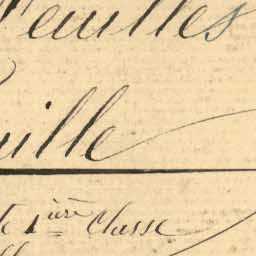 Feuilles
uille
te 1ère Classe